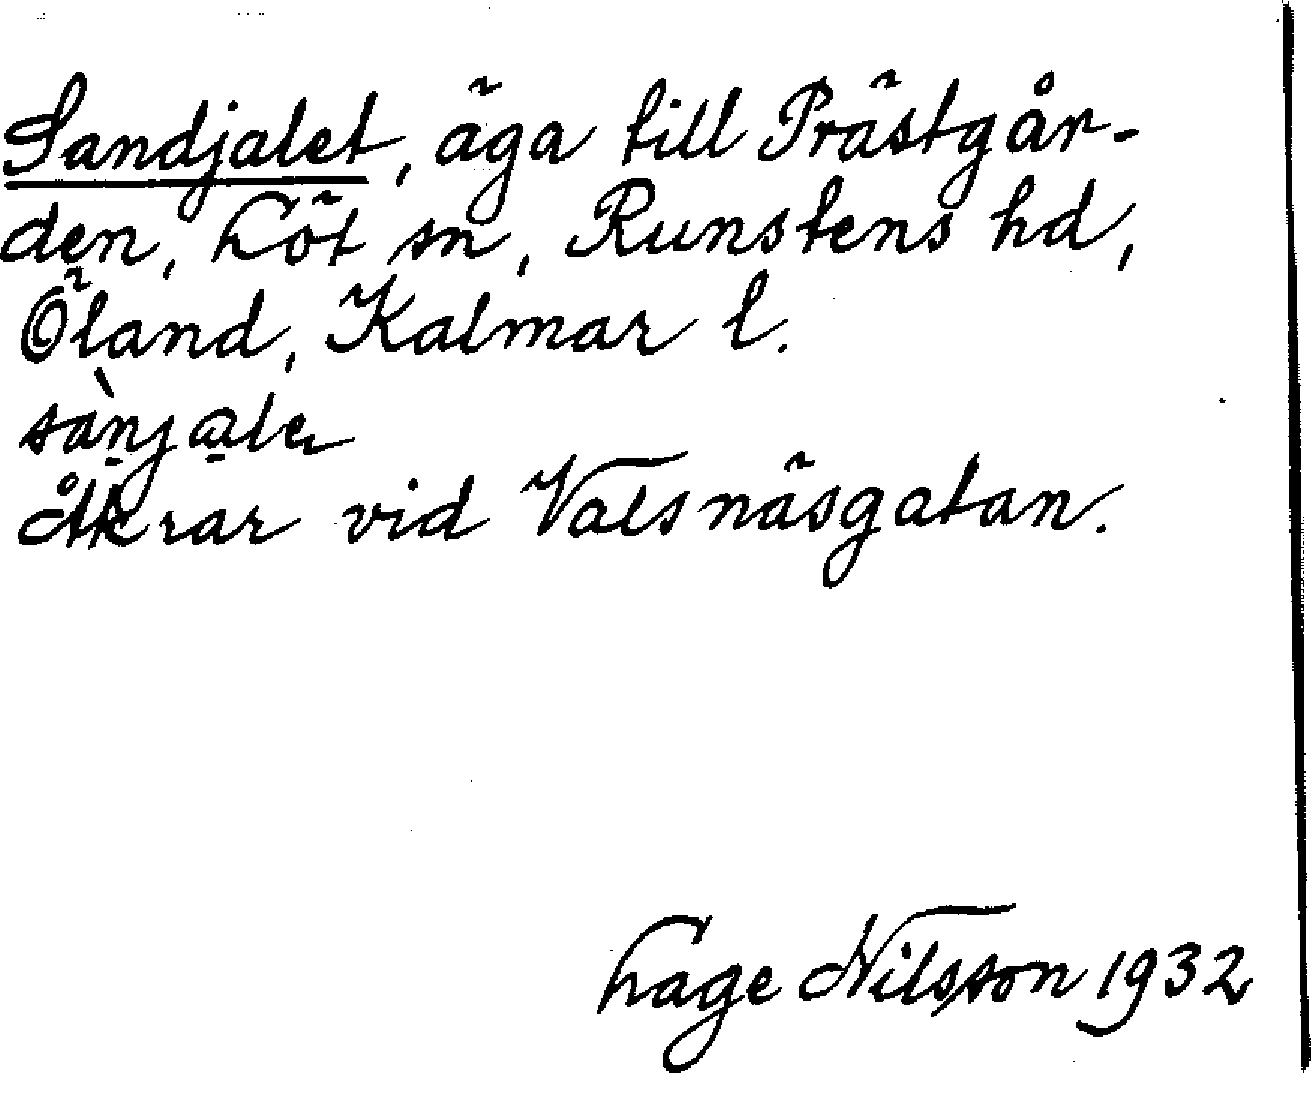 Sandjalet, äga till Prästgår-
den, Löt sn, Runstens hd,
Öland, Kalmar l.
Åkrar vid Valsnäsgatan.
Lage Nilsson 1932